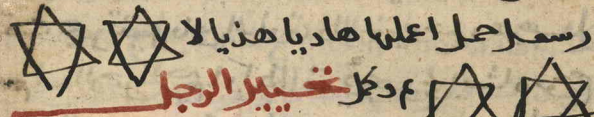 حمل اعملها هاديا هذيا لا
وكل تخيير الرجل